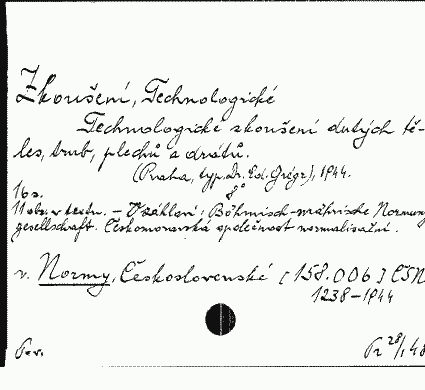 Zkoušení, Technologické
Technologické zkoušení dutých tě-
les, trub, plechů a drátů.
(Praha, typ. Dr. Ed. Grégr), 1944.
16 s. 8°
11 obr. v textu. – V záhlaví: Böhmisch-mährische Normung
gesellschaft. Českomoravská společnost normalisační.
v. Normy, Československé (158.006) ČSN
1238-1944